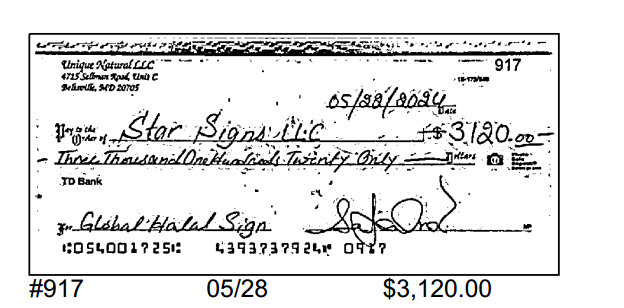 Unique Natural LLC 917
4715 Sellman Road, Unit C
Beltsville, MD 20705
05/22/2024
Date
Pay to the
Order of Star Signs LLC $ 3120.00
Three Thousand One Hundrids Twenty Only Dollars
TD Bank
For Global Halal Sign
⑆054001725⑆ 4393737924⑈ 0917
#917 05/28 $3,120.00